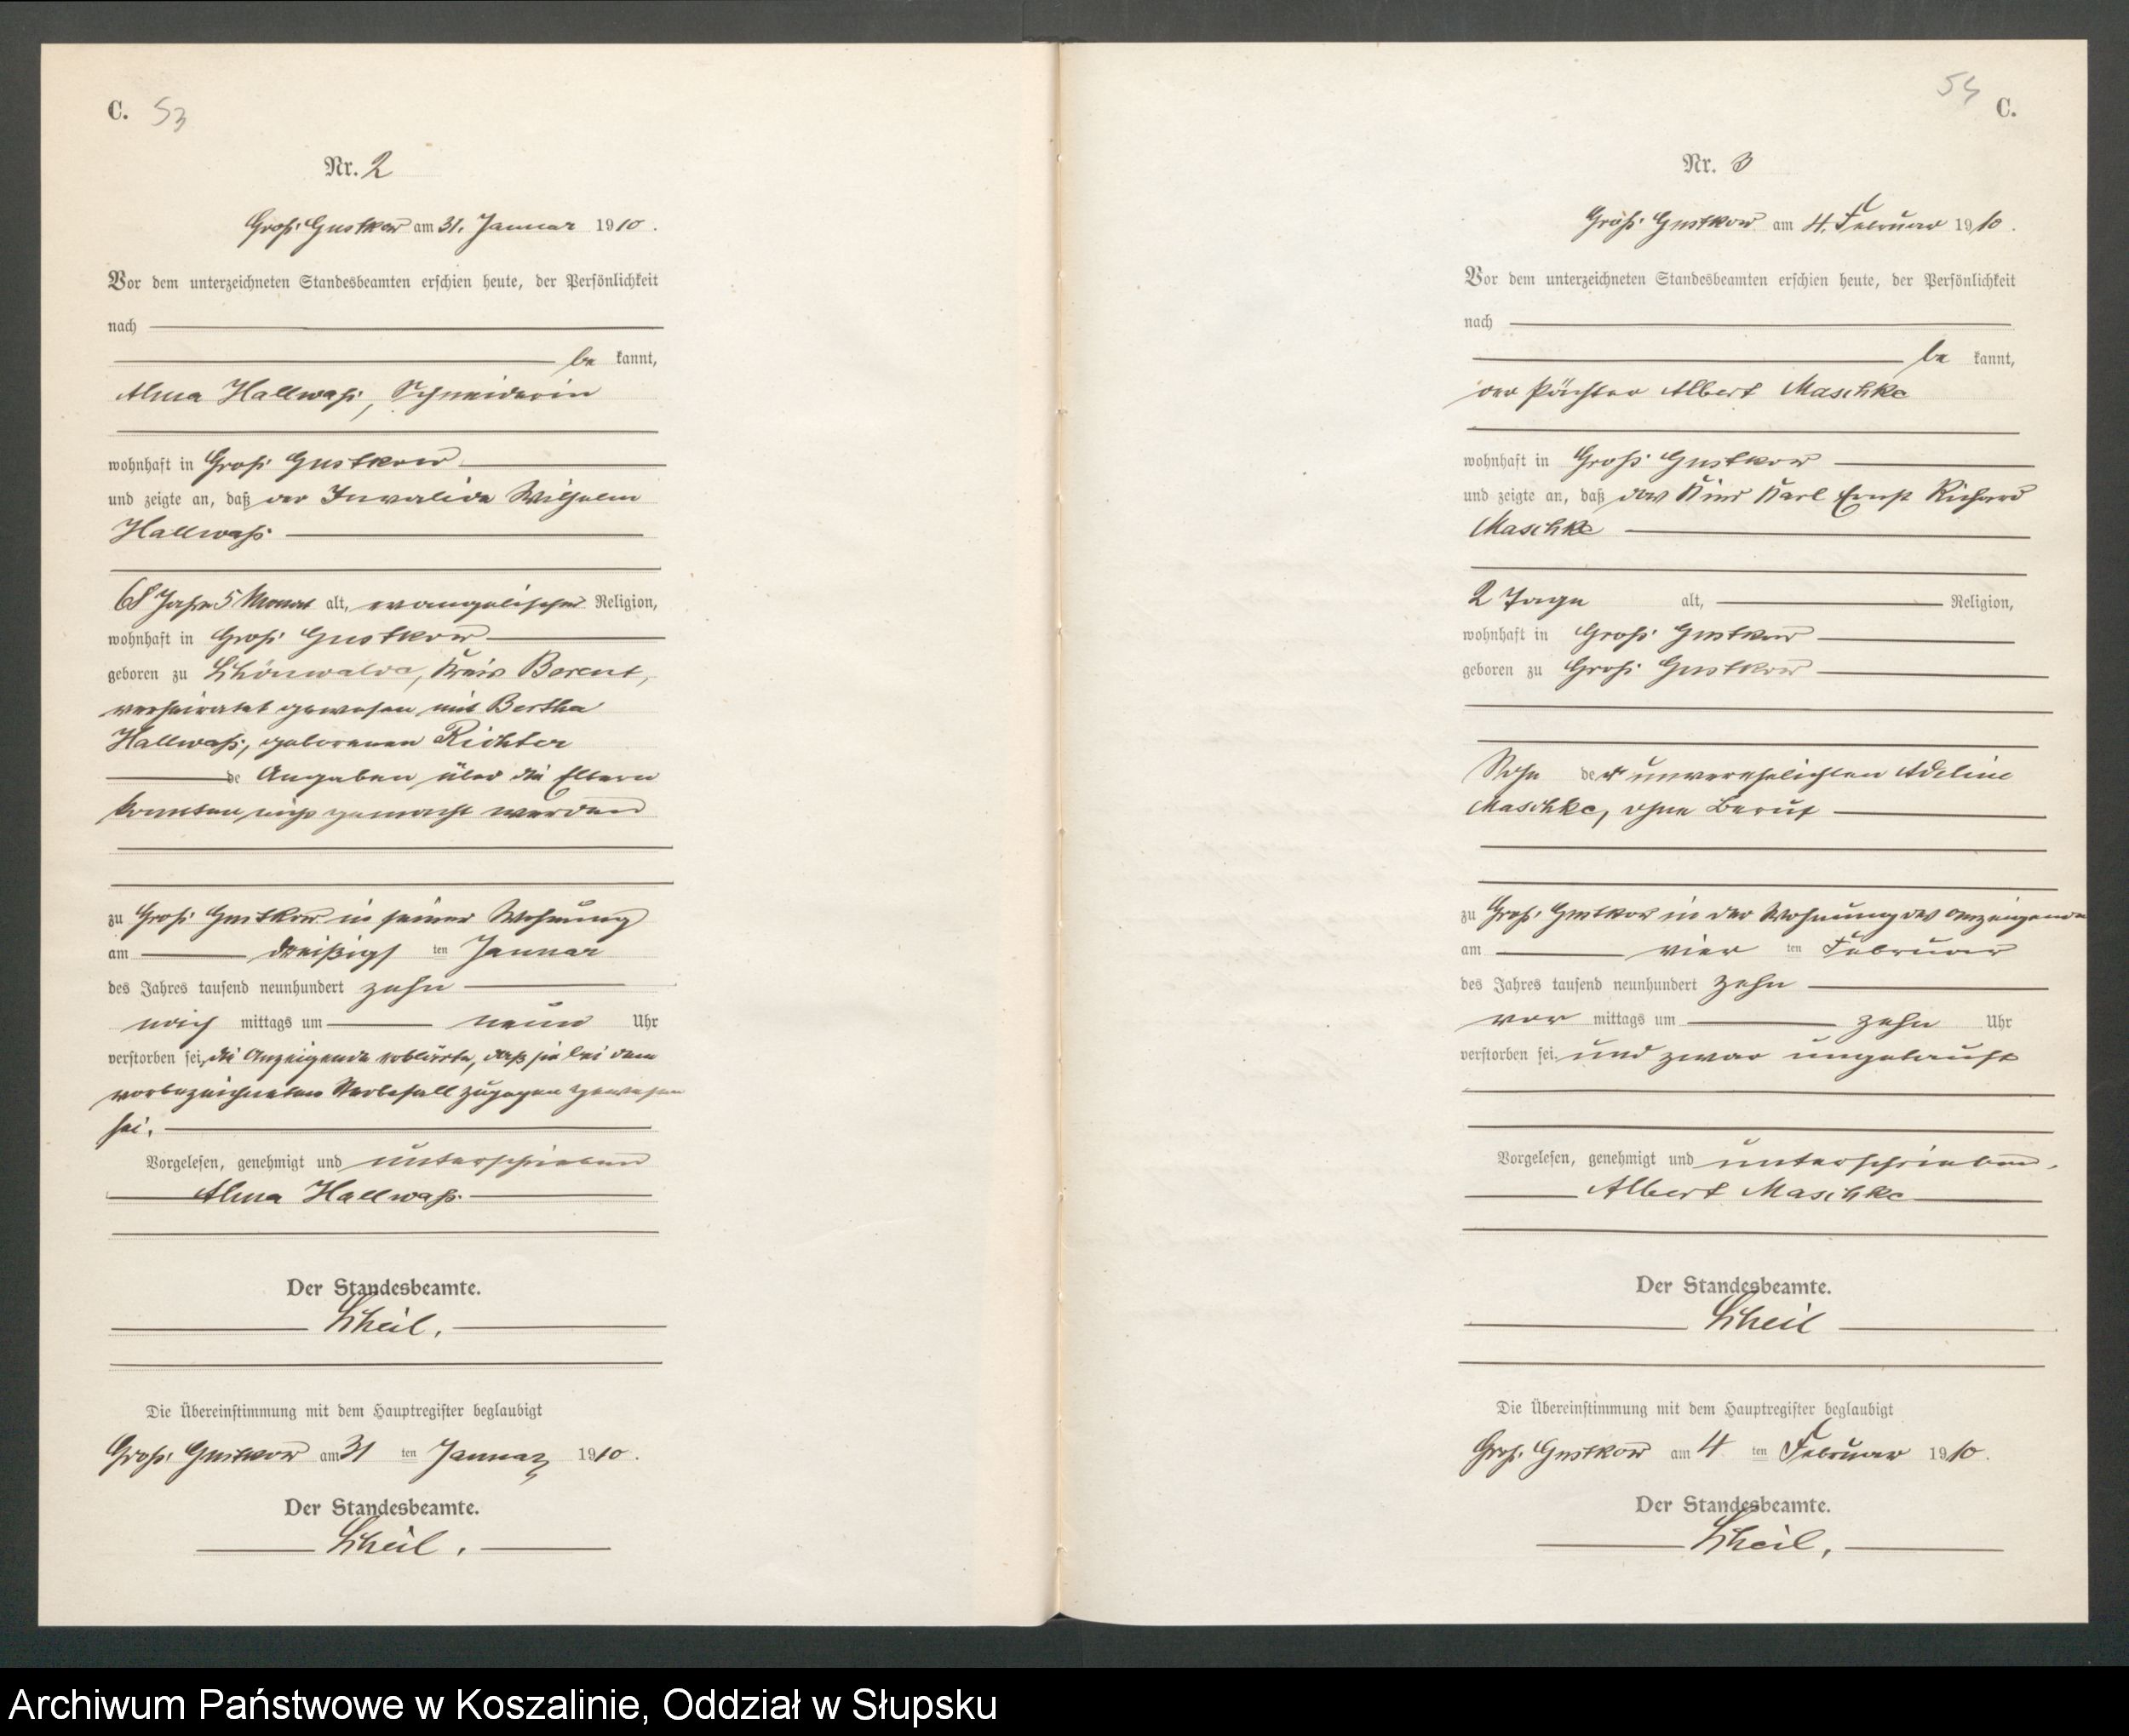 C. 53
Nr. 2
Groß Gustkow am 31. Januar 1910.
Vor dem unterzeichneten Standesbeamten erschien heute, der Persönlichkeit
nach
be kannt,
Alma Hallwaß, Schneiderin
wohnhaft in Groß Gustkow
und zeigte an, daß der Invalide Wilhelm
Hallwaß
68 Jahr 5 Monat alt, evangelischer Religion,
wohnhaft in Groß Gustkow
geboren zu Schönwalde, Kreis Berent,
verheiratet gewesen mit Bertha
Hallwaß, geborenen Richter
de Angaben über die Eltern
konnten nicht gemacht werden
zu Groß Gustkow in seiner Wohnung
am dreißigs ten Januar
des Jahres tausend neunhundert zehn
nach mittags um neun Uhr
verstorben sei, die Anzeigende erklärte, daß sie bei dem
vorbezeichneten Sterbefall zugegen gewesen
sei.
Vorgelesen, genehmigt und unterschrieben
Alma Hallwaß.
Der Standesbeamte.
Scheil.
Die Übereinstimmung mit dem Hauptregister beglaubigt
Groß Gustkow am 31 ten Januar 1910.
Der Standesbeamte.
Scheil.
54 C.
Nr. 3
Groß Gustkow am 4. Februar 1910.
Vor dem unterzeichneten Standesbeamten erschien heute, der Persönlichkeit
nach
be kannt,
der Pächter Albert Maschke
wohnhaft in Groß Gustkow
und zeigte an, daß das Kind Karl Ernst Richard
Maschke
2 Tage alt, Religion,
wohnhaft in Groß Gustkow
geboren zu Groß Gustkow
Sohn der unverehelichten Adeline
Maschke, ohne Beruf
zu Groß Gustkow in der Wohnung des Anzeigenden
am vier ten Februar
des Jahres tausend neunhundert zehn
vor mittags um zehn Uhr
verstorben sei, und zwar ungetauft
Vorgelesen, genehmigt und unterschrieben.
Albert Maschke
Der Standesbeamte.
Scheil
Die Übereinstimmung mit dem Hauptregister beglaubigt
Groß Gustkow am 4 ten Februar 1910.
Der Standesbeamte.
Scheil.
Archiwum Państwowe w Koszalinie, Oddział w Słupsku